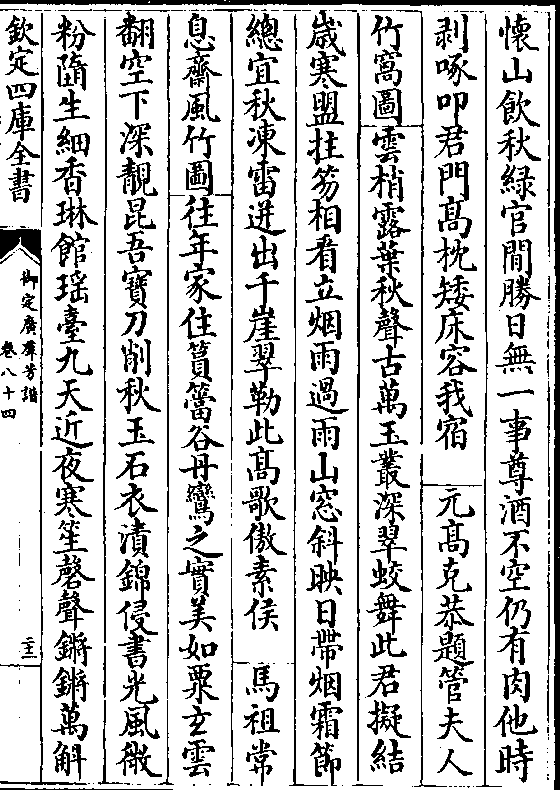 懷山飲秋緑官閒勝日無一事尊酒不空仍有肉他時
剥啄叩君門髙枕矮床容我宿　元髙克恭題管夫人
竹窩圖雲梢露葉秋聲古萬玉叢深翠蛟舞此君擬結
嵗寒盟拄笏相看立烟雨過雨山窓斜映日帶烟霜節
總宜秋凍雷迸出千崖翠勒此髙歌傲素侯　馬祖常
息齋風竹圖往年家住篔簹谷丹鸞之實美如粟玄雲
翻空下深靚昆吾寶刀削秋玉石衣漬錦侵書光風微
粉隨生細香琳館瑶臺九天近夜寒笙磬聲鏘鏘萬斛
欽定四庫全書
御定廣羣芳譜
卷八十四
二十二